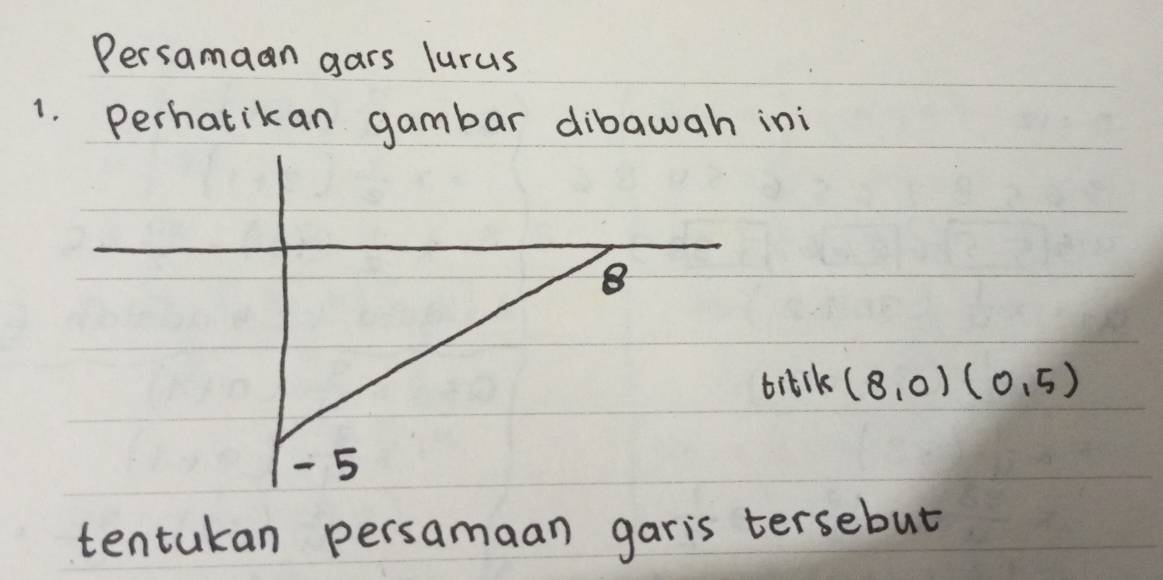 Persamaan gars lurus
1. Perhatikan gambar dibawah ini
8
titik (8,0) (0,5)
-5
tentukan persamaan garis tersebut